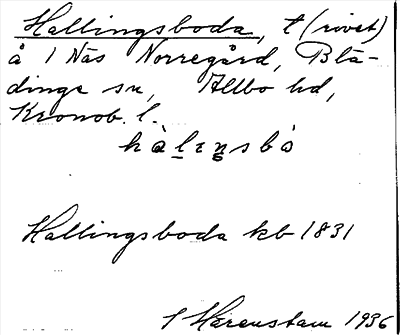 Hallingsboda, t (rivet)
å 1 Näs Norregård, Blä-
dinge sn, Allbo hd,
Kronob. l.
hàlıŋsbò
Hallingsboda kb 1831
S Härenstam 1936